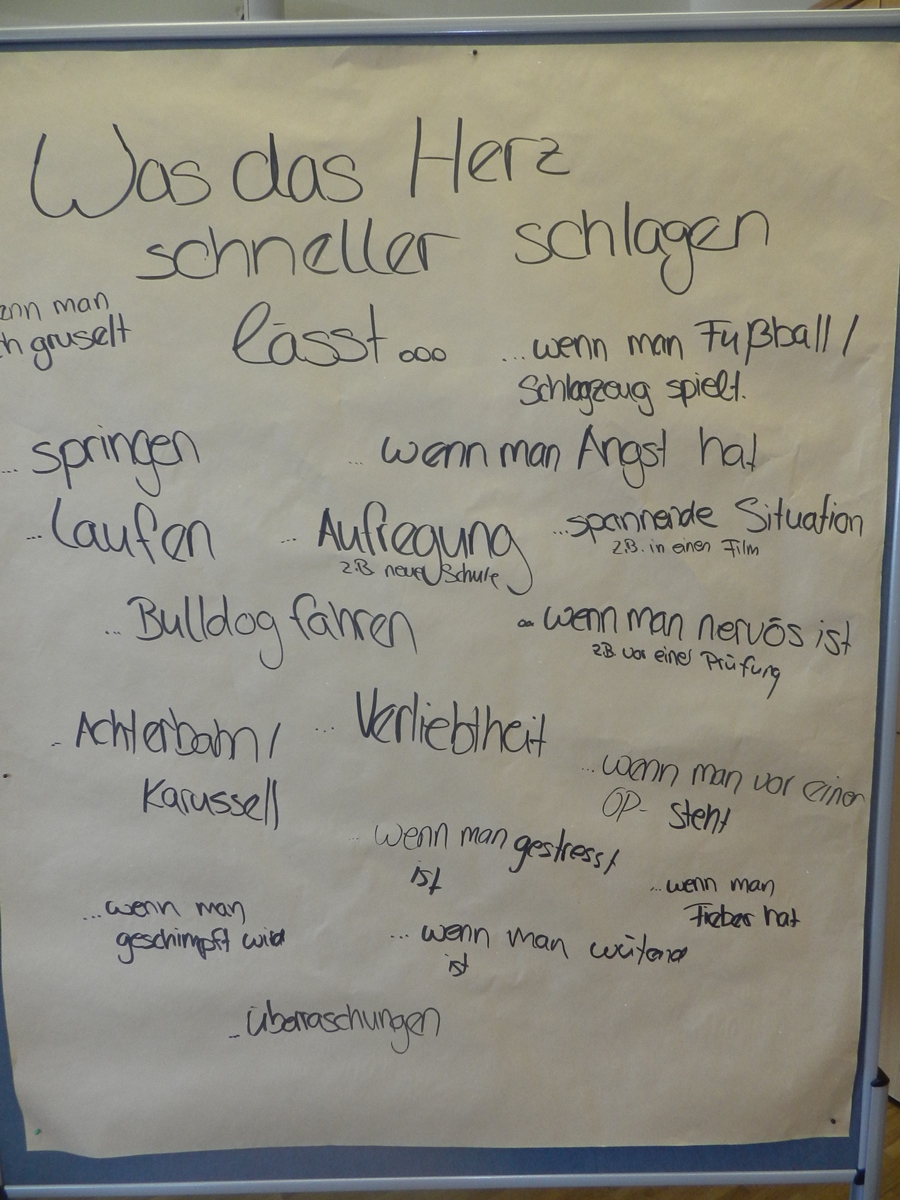 Was das Herz
schneller schlagen
lässt ...
enn man
h gruselt
... wenn man Fußball /
Schlagzeug spielt.
... springen
... wenn man Angst hat
... Laufen
... Aufregung
z.B. neue Schule
... spannende Situation
z.B. in einen Film
... Bulldog fahren
... wenn man nervös ist
z.B. vor einer Prüfung
... Achterbahn /
Karussell
... Verliebtheit
... wenn man vor einer
OP- steht
... wenn man gestresst
ist
... wenn man
Fieber hat
... wenn man
geschimpft wird
... wenn man wütend
ist
... überraschungen